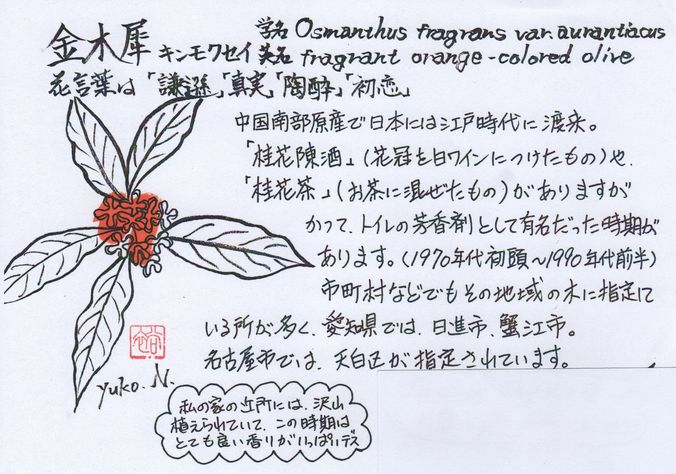 金木犀 キンモクセイ 学名 Osmanthus fragrans var. aurantiacus
英名 fragrant orange-colored olive
花言葉は「謙遜」「真実」「陶酔」「初恋」
中国南部原産で日本には江戸時代に渡来。
「桂花陳酒」(花冠を白ワインにつけたもの)や、
「桂花茶」(お茶に混ぜたもの)がありますが
かつて、トイレの芳香剤として有名だった時期が
あります。(1970年代初頭~1990年代前半)
市町村などでもその地域の木に指定して
いる所が多く、愛知県では、日進市、蟹江市。
名古屋市では、天白区が指定されています。
yuko. N.
私の家の近所には、沢山
植えられていて、この時期は
とても良い香りがいっぱいデス